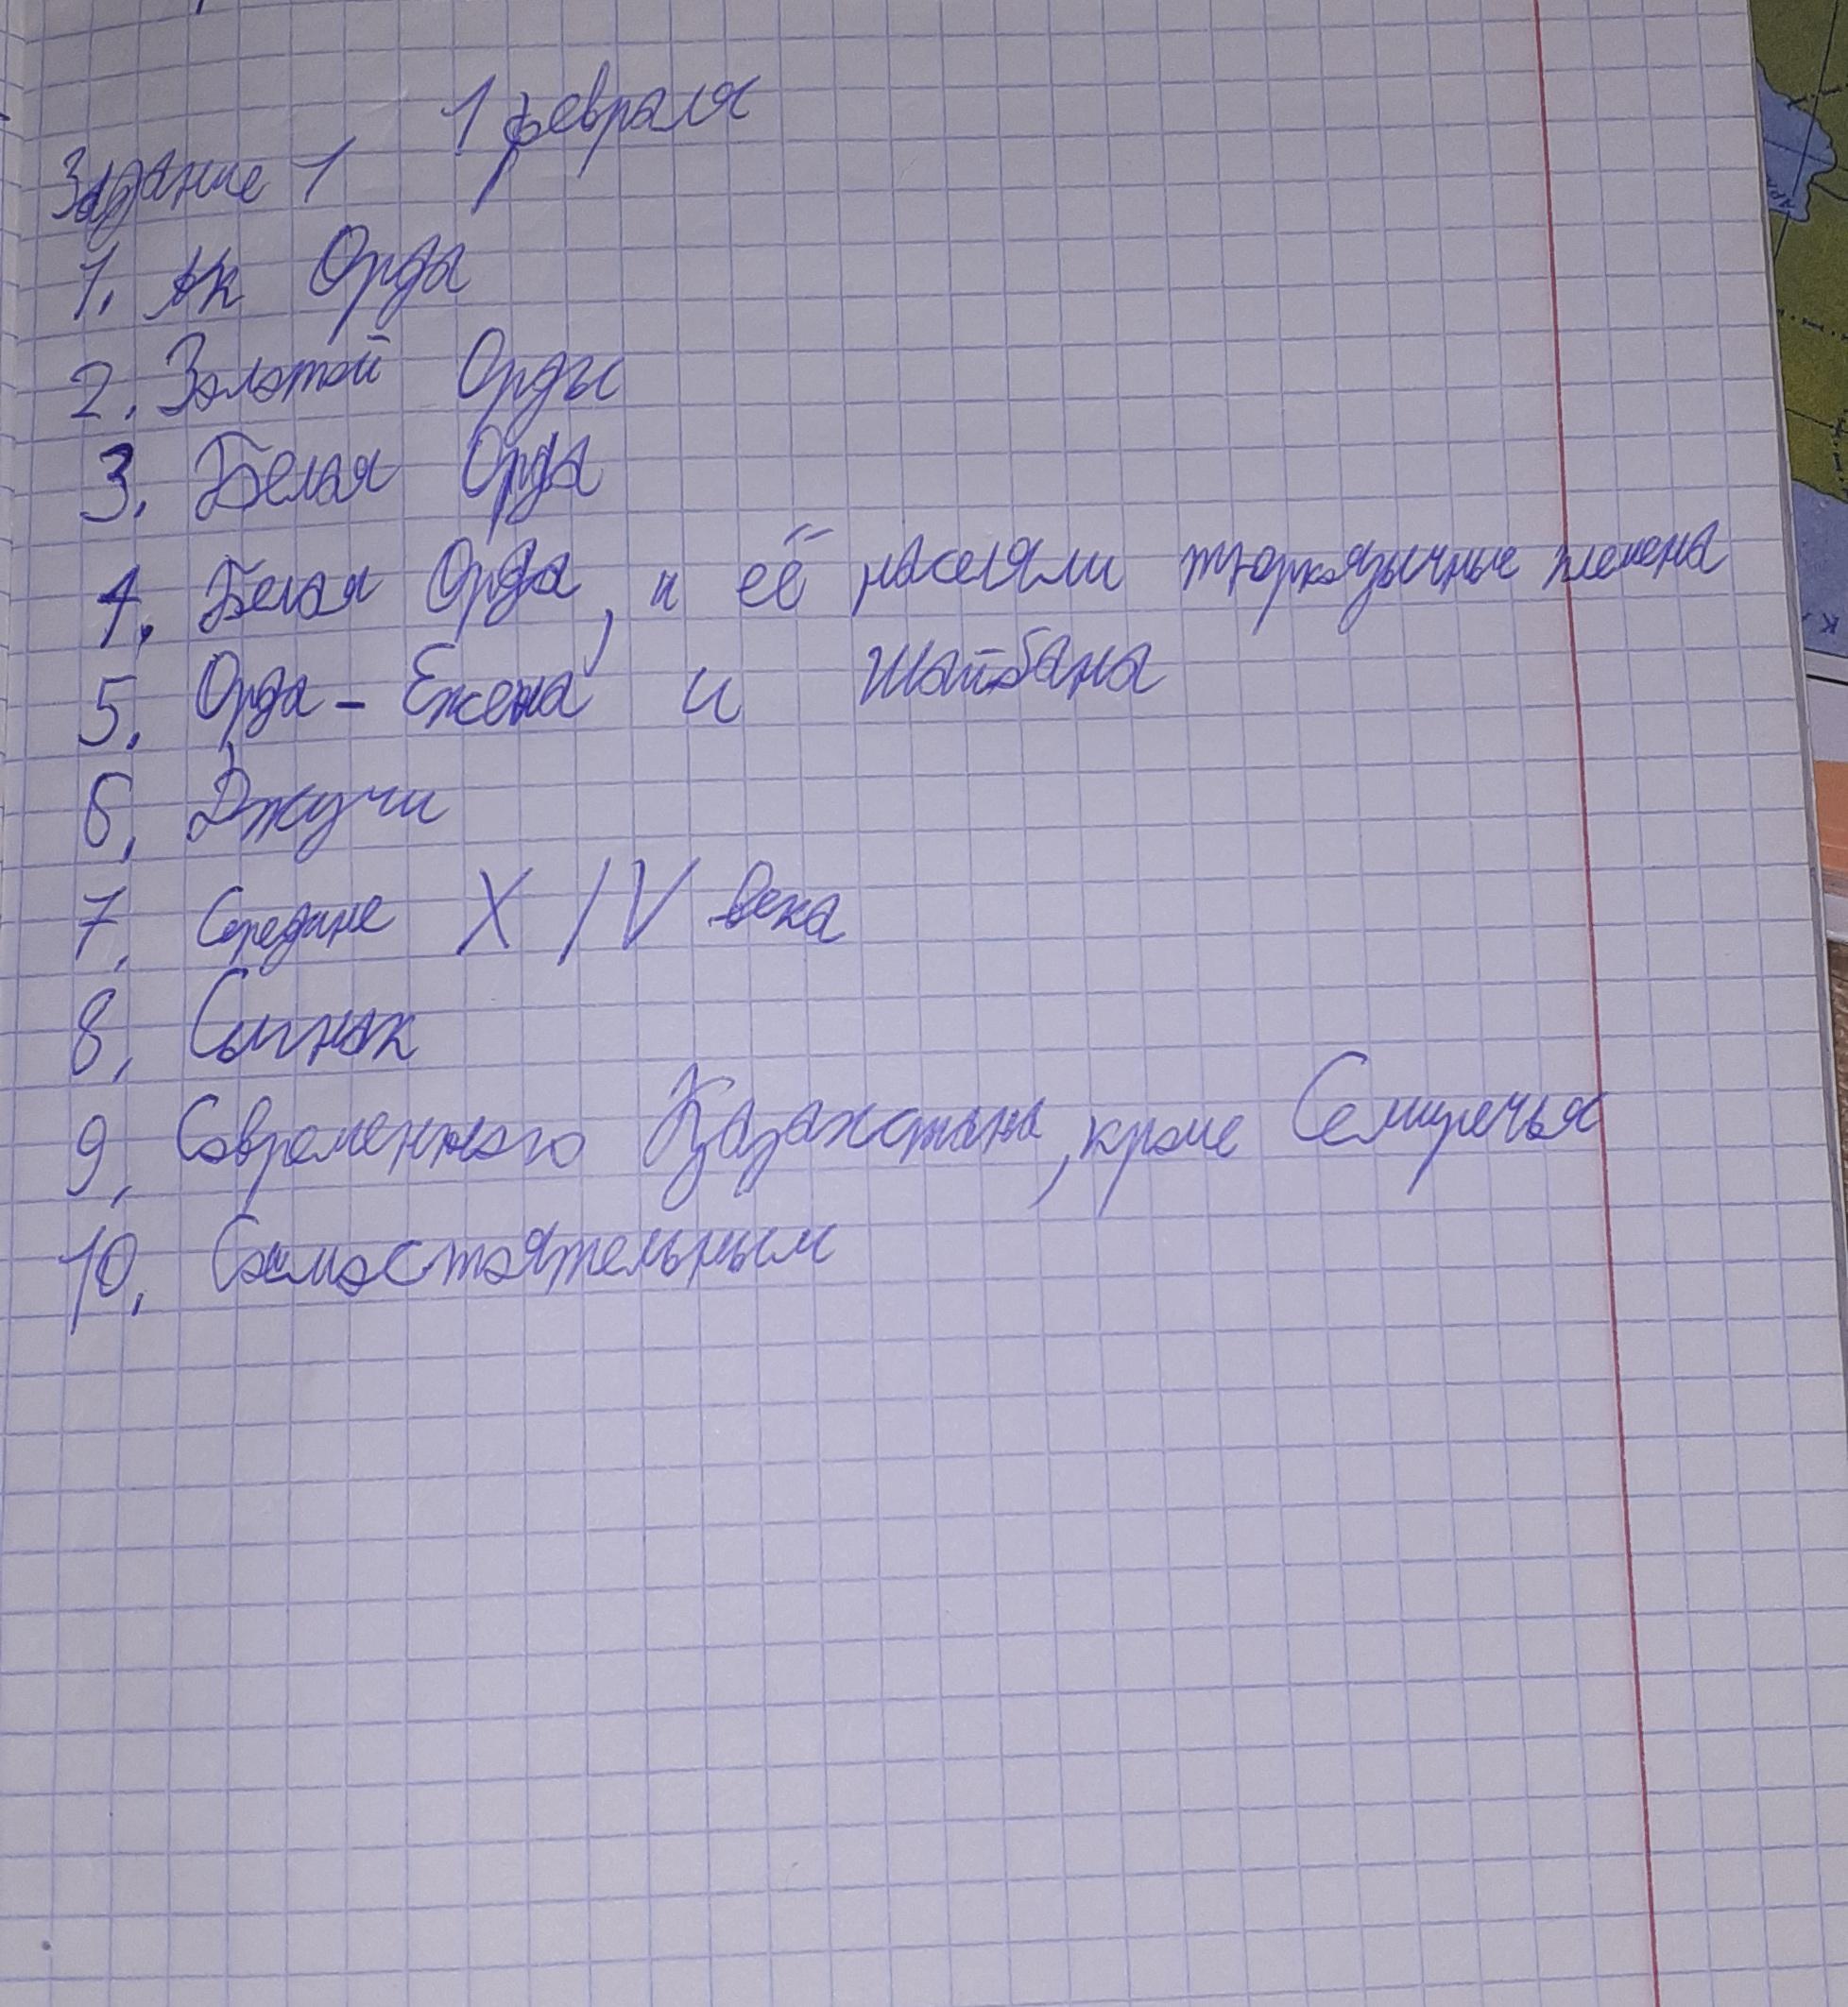 1 февраля
Задание 1
1. Ак Орда
2. Золотой Орды
3. Белая Орда
4. Белая Орда, и её населяли тюркоязычные племена
5. Орда - Ежена и Шайбана
6, Джучи
7, Середине XIV века
8, Сыгнак
9, Современного Казахстана, кроме Семиречья
10, Самостоятельным